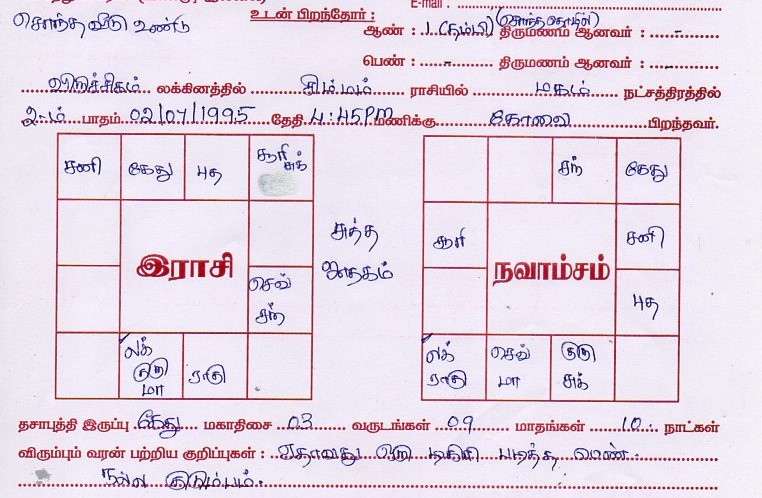 சொந்த வீடு உண்டு
உடன் பிறந்தோர் :
E-mail :
ஆண் : 1 (தம்பி) (சொந்த தொழில்) திருமணம் ஆனவர் : -
பெண் : - திருமணம் ஆனவர் : -
விருச்சிகம் லக்கினத்தில் சிம்மம் ராசியில் மகம் நட்சத்திரத்தில்
2-ம் பாதம் 02/07/1995 தேதி 4:45PM மணிக்கு கோவை பிறந்தவர்.
சனி கேது புத சூரி சுக்
சந் கேது
சூரி சனி
இராசி
சுத்த ஜாதகம்
நவாம்சம்
செவ் சந்
புத
லக் குரு மா ராகு
லக் ராகு செவ் மா குரு சுக்
தசாபுத்தி இருப்பு கேது மகாதிசை 03 வருடங்கள் 09 மாதங்கள் 10 நாட்கள்
விரும்பும் வரன் பற்றிய குறிப்புகள் : ஏதாவது ஒரு டிகிரி படித்த பெண்.
நல்ல குடும்பம்.